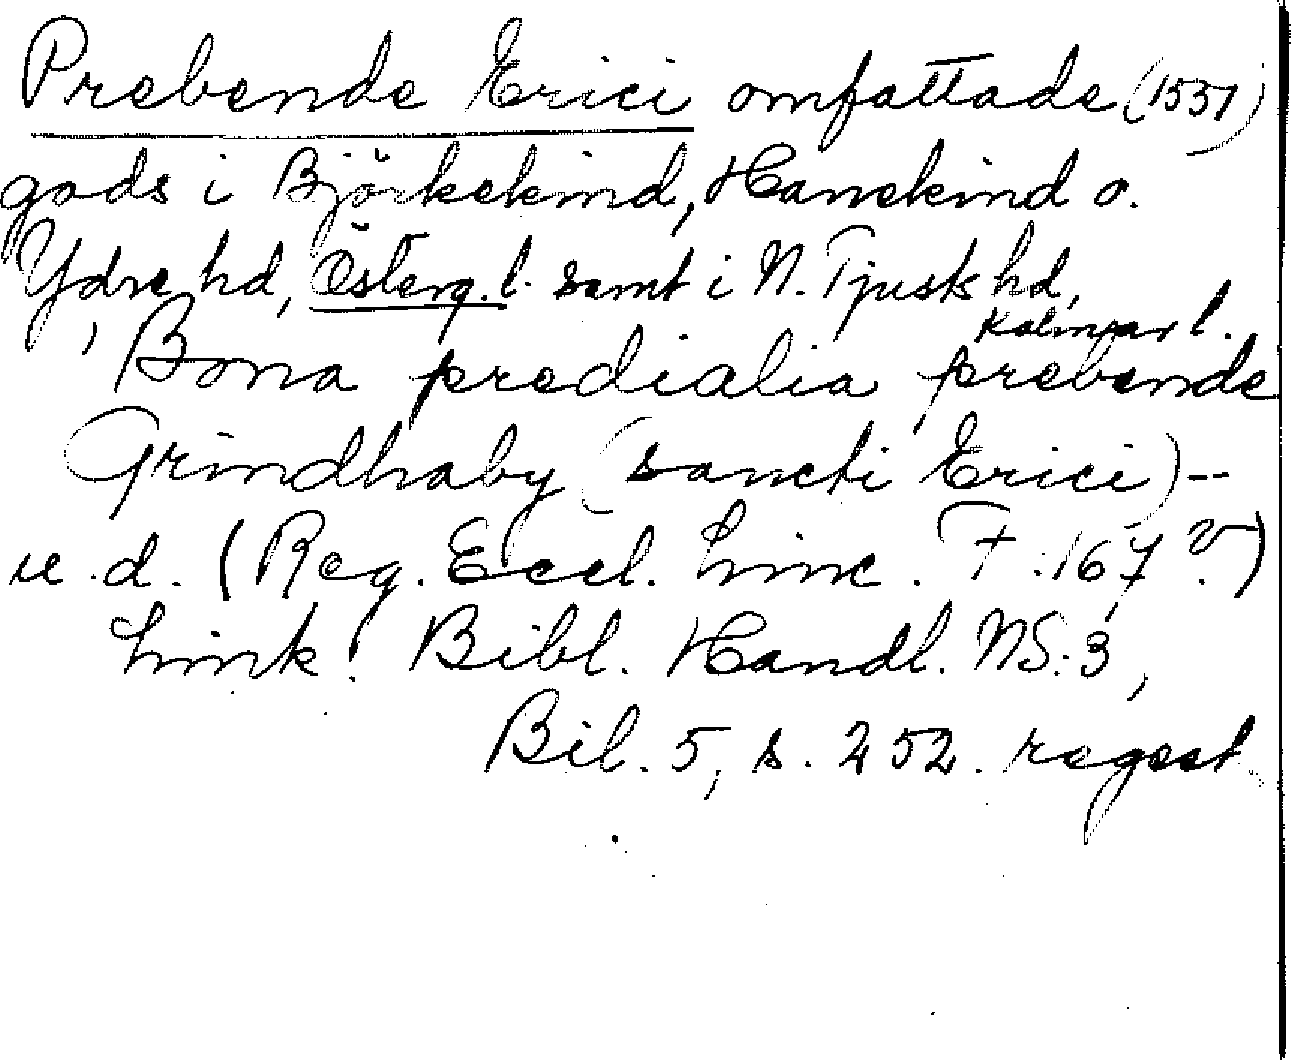 Prebende Erici omfattade (1537)
gods i Björkekind, Hanekind o.
Ydre hd, Österg. l. samt i N. Tjusts hd,
Kalmar l.
Bona predialia prebende
Grindhaby (sancti Erici) --
u.d. (Reg. Eccl. Linc. F :167 v.)
Link. Bibl. Handl. NS:3,
Bil. 5, s. 252. regest